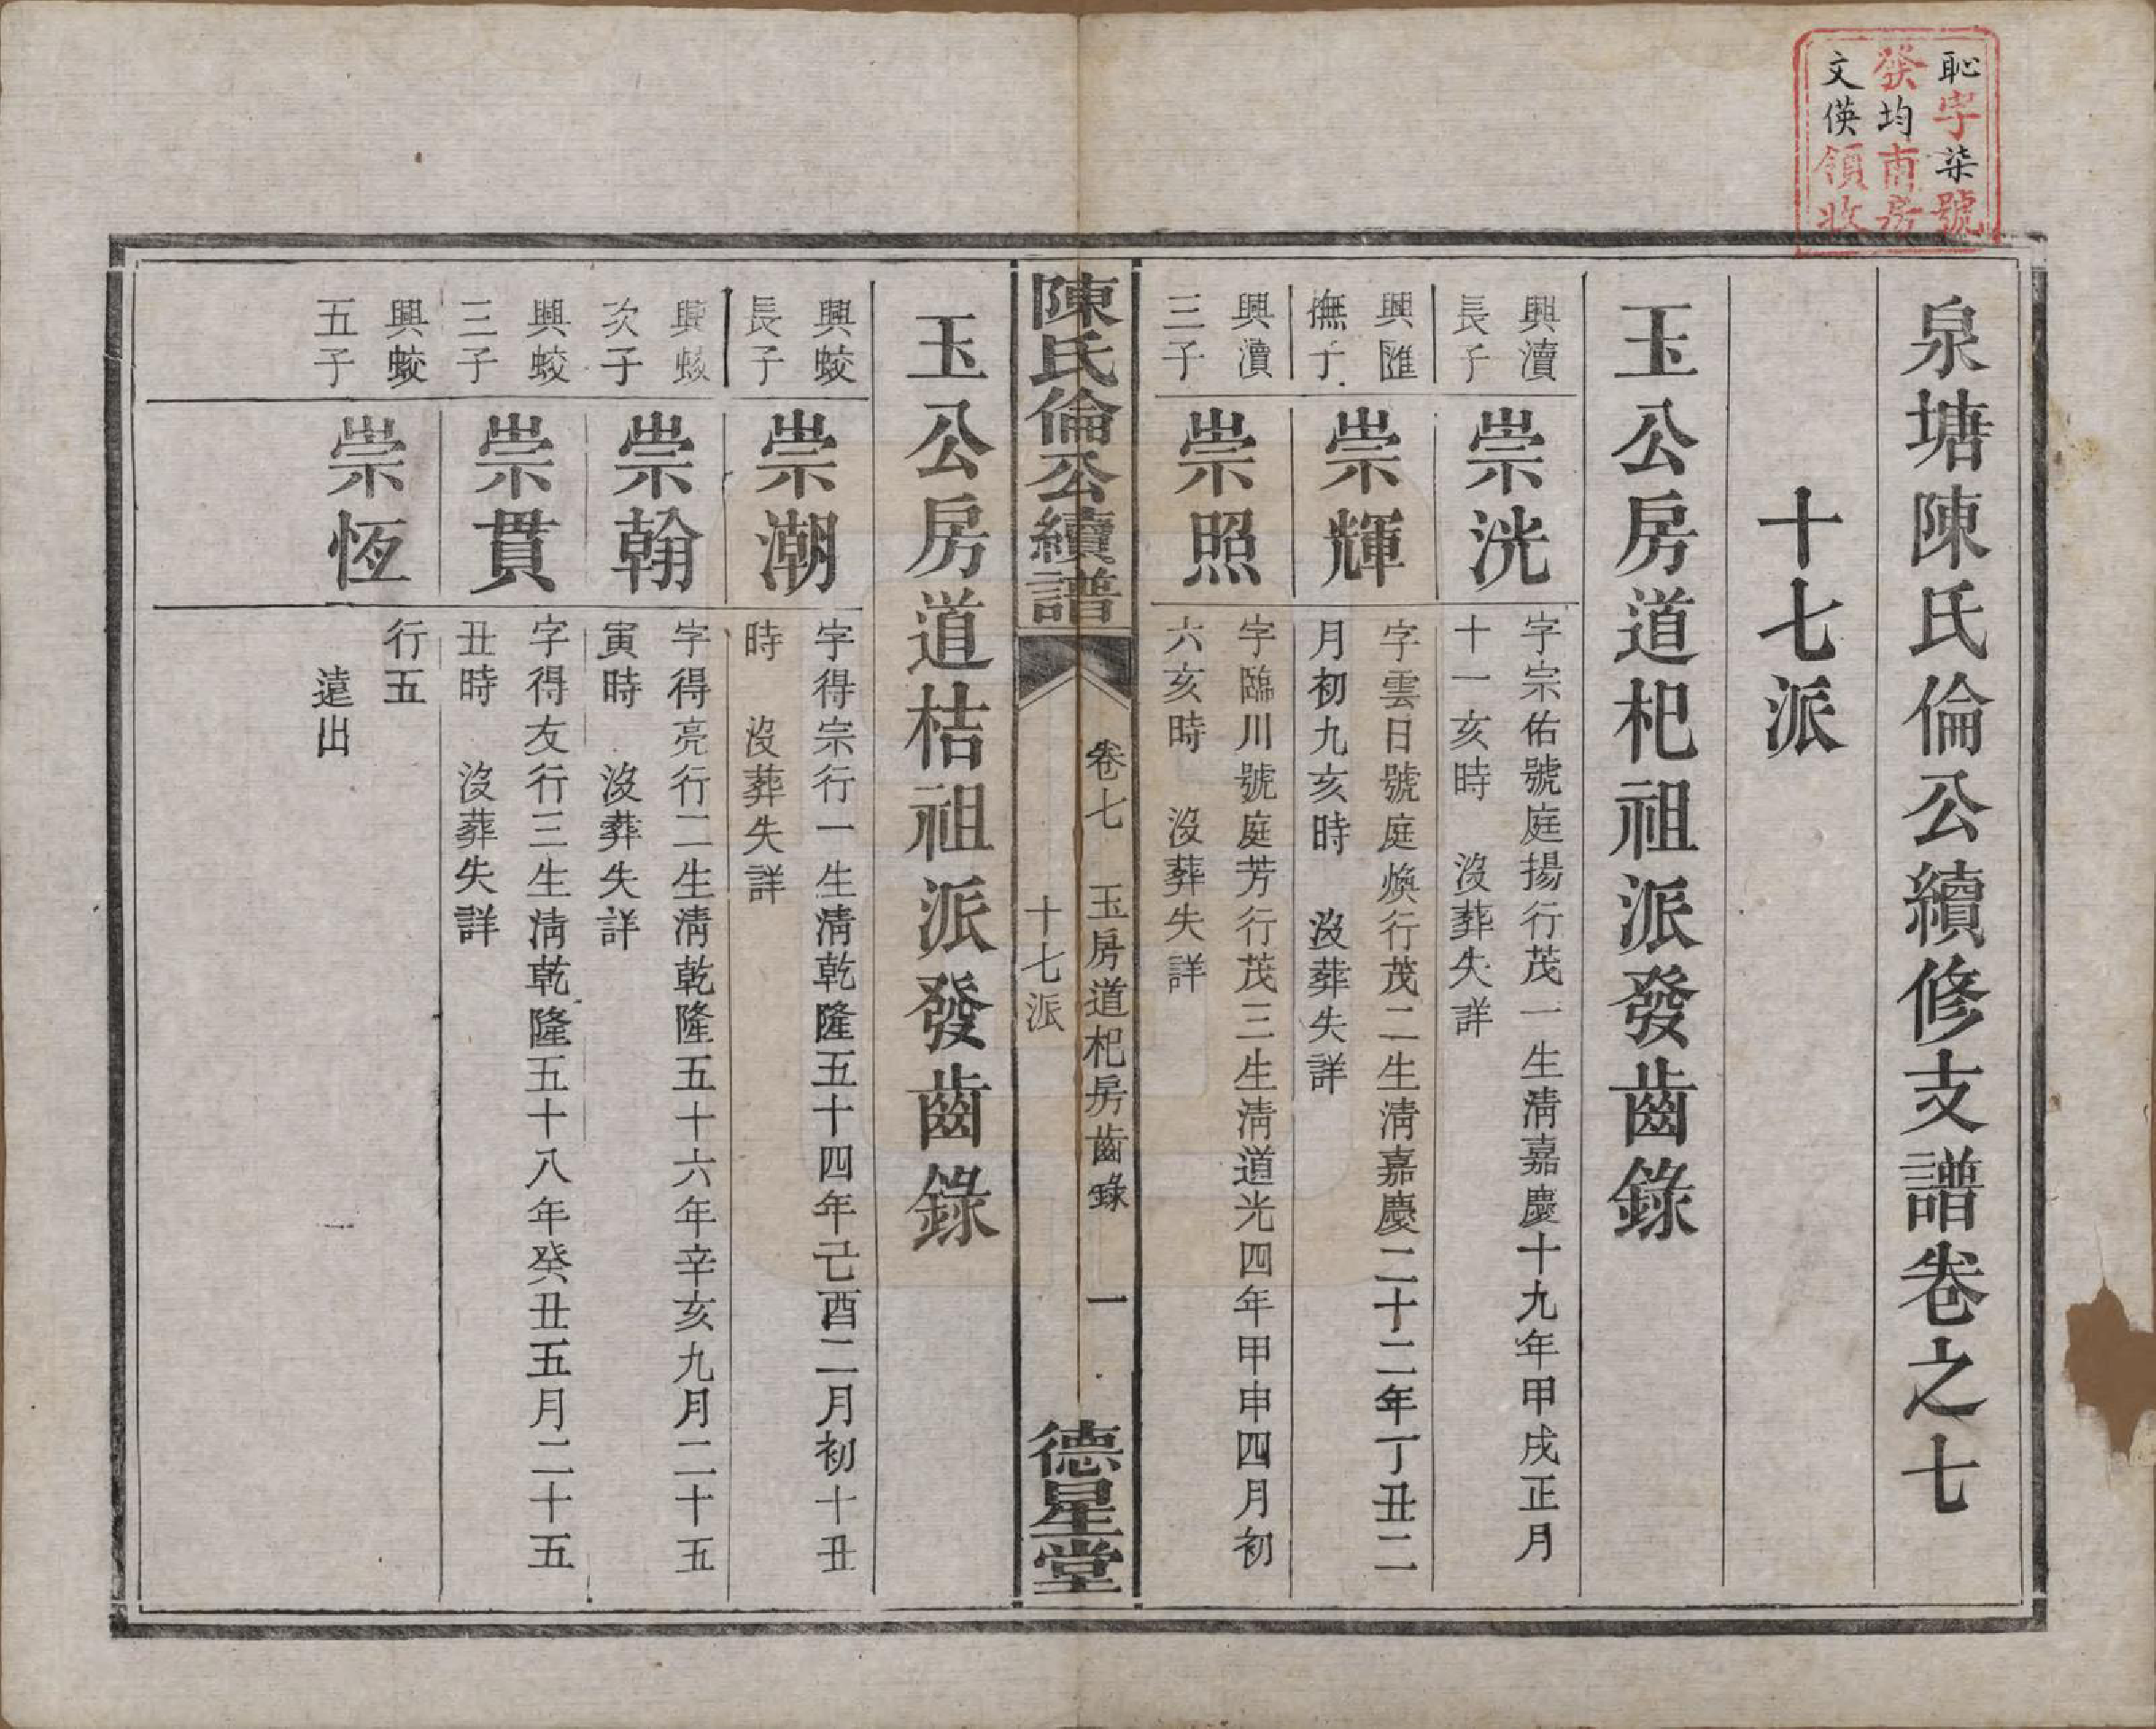 恥字柒號
發均甫房
文偀領收
泉塘陳氏倫公續修支譜卷之七
十七派
玉公房道杞祖派發齒錄
興瀆
長子
崇洸
字宗佑號庭揚行茂一生清嘉慶十九年甲戌正月
十一亥時 沒葬失詳
興匯
撫子
崇輝
字雲日號庭煥行茂二生清嘉慶二十二年丁丑二
月初九亥時 沒葬失詳
興瀆
三子
崇照
字臨川號庭芳行茂三生清道光四年甲申四月初
六亥時 沒葬失詳
陳氏倫公續譜
卷七 玉房道杞房齒錄 一
十七派
德星堂
玉公房道桔祖派發齒錄
興蛟
長子
崇潮
字得宗行一生清乾隆五十四年己酉二月初十丑
時 沒葬失詳
興蛟
次子
崇翰
字得亮行二生清乾隆五十六年辛亥九月二十五
寅時 沒葬失詳
興蛟
三子
崇貫
字得友行三生清乾隆五十八年癸丑五月二十五
丑時 沒葬失詳
興蛟
五子
崇恆
行五
遠出